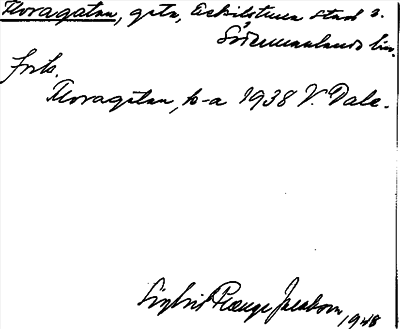 Moragatan, gata, Eskilstuna stad o.
Södermanlands län.
forts.
Moragatan, k-a 1938 V. Dale.
Sigbrit Plænge Jacobson, 1948